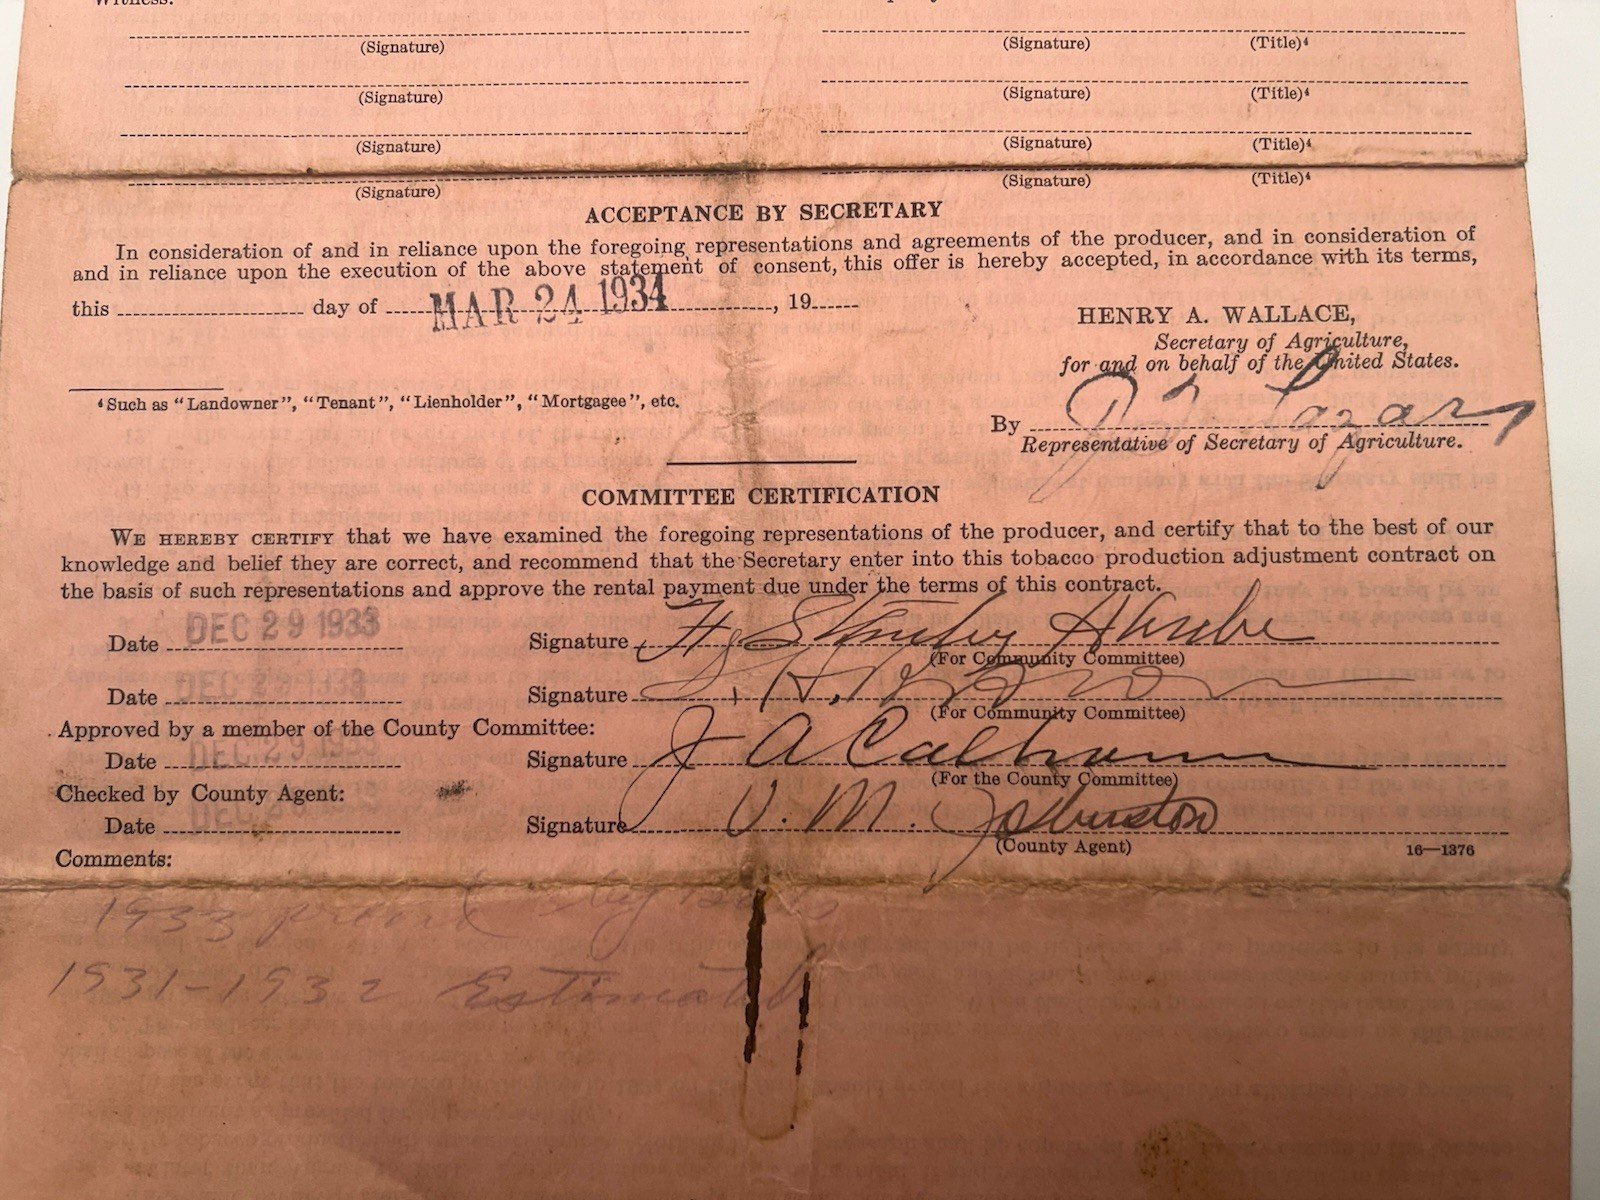 Witness:
(Signature) (Signature) (Title)⁴
(Signature) (Signature) (Title)⁴
(Signature) (Signature) (Title)⁴
(Signature) (Signature) (Title)⁴
ACCEPTANCE BY SECRETARY
In consideration of and in reliance upon the foregoing representations and agreements of the producer, and in consideration of
and in reliance upon the execution of the above statement of consent, this offer is hereby accepted, in accordance with its terms,
this day of MAR 24 1934, 19
HENRY A. WALLACE,
Secretary of Agriculture,
for and on behalf of the United States.
⁴ Such as "Landowner", "Tenant", "Lienholder", "Mortgagee", etc.
By Lazar
Representative of Secretary of Agriculture.
COMMITTEE CERTIFICATION
WE HEREBY CERTIFY that we have examined the foregoing representations of the producer, and certify that to the best of our
knowledge and belief they are correct, and recommend that the Secretary enter into this tobacco production adjustment contract on
the basis of such representations and approve the rental payment due under the terms of this contract.
Date DEC 29 1933 Signature
(For Community Committee)
Date DEC 29 1933 Signature
(For Community Committee)
Approved by a member of the County Committee:
Date DEC 29 1933 Signature J A Calhoun
(For the County Committee)
Checked by County Agent:
Date DEC Signature J. M. Johnston
(County Agent) 16—1376
Comments:
1933
1931-1932 Estimated